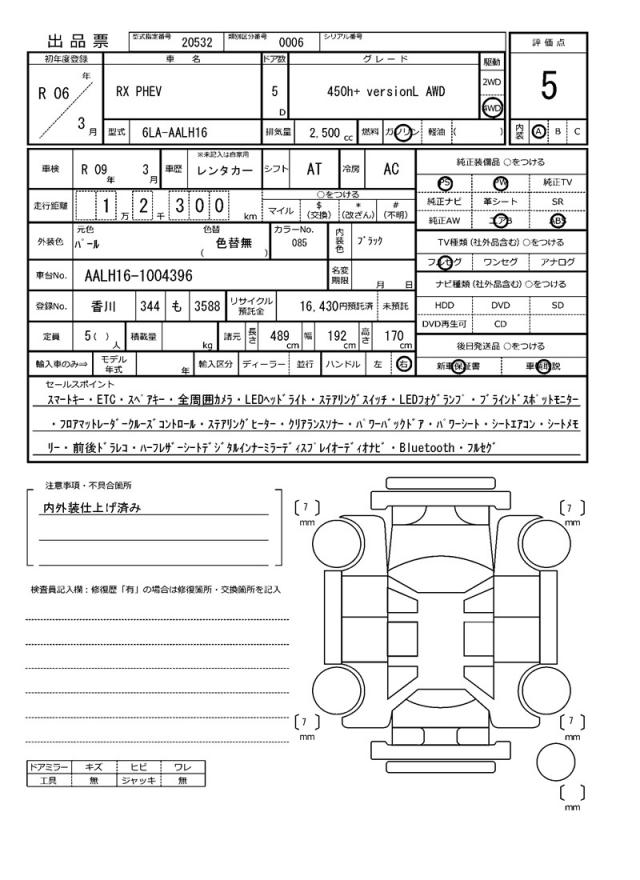 出品票 型式指定番号 20532 類別区分番号 0006 シリアル番号
評価点
初年度登録 車名 ドア数 グレード 駆動
R 06 年 3 月 RX PHEV 5 D 450h+ versionL AWD 2WD 4WD
5
型式 6LA-AALH16 排気量 2,500 cc 燃料 ガソリン 軽油 ( )
内装 A B C
車検 R 09 年 3 月 車歴 ※未記入は自家用 レンタカー シフト AT 冷房 AC
純正装備品 ○をつける
PS PW 純正TV
走行距離 1 万 2 千 3 0 0 km
○をつける
マイル $ (交換) * (改ざん) # (不明)
純正ナビ 革シート SR
純正AW エアB ABS
外装色 元色 パール 色替 色替無 ( ) カラーNo. 085 内装色 ブラック
TV種類 (社外品含む) ○をつける
フルセグ ワンセグ アナログ
車台No. AALH16-1004396 名変期限 月 日
ナビ種類 (社外品含む) ○をつける
HDD DVD SD
DVD再生可 CD
登録No. 香川 344 も 3588 リサイクル預託金 16,430円預託済 未預託
定員 5( ) 人 積載量 kg 諸元 長さ 489 cm 幅 192 cm 高さ 170 cm
後日発送品 ○をつける
新車保証書 車輌取説
輸入車のみ⇒ モデル年式 年 輸入区分 ディーラー 並行 ハンドル 左 右
セールスポイント
スマートキー・ETC・スペアキー・全周囲カメラ・LEDヘッドライト・ステアリングスイッチ・LEDフォグランプ・ブラインドスポットモニター
・フロアマットレーダークルーズコントロール・ステアリングヒーター・クリアランスソナー・パワーバックドア・パワーシート・シートエアコン・シートメモ
リー・前後ドラレコ・ハーフレザーシートデジタルインナーミラーディスプレイオーディオナビ・Bluetooth・フルセグ
注意事項・不具合箇所
内外装仕上げ済み
7 mm
7 mm
検査員記入欄：修復歴「有」の場合は修復箇所・交換箇所を記入
7 mm
7 mm
ドアミラー キズ ヒビ ワレ
工具 無 ジャッキ 無
mm